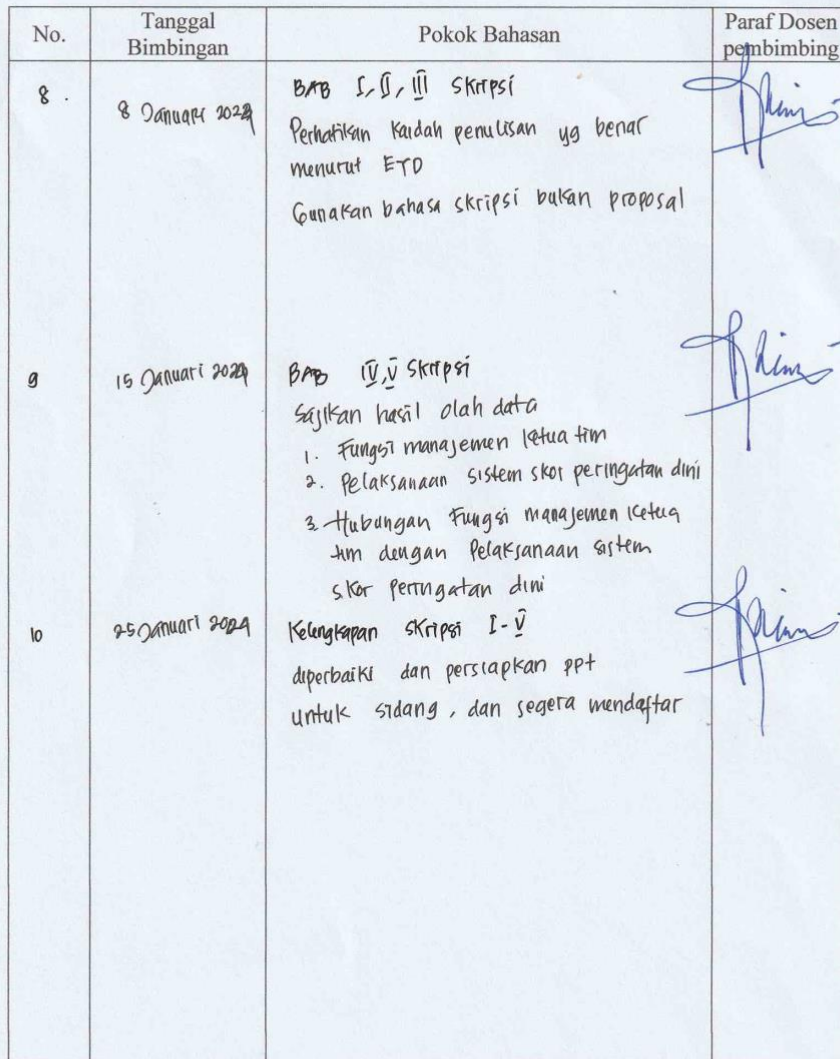 No.
Tanggal
Bimbingan
Pokok Bahasan
Paraf Dosen
pembimbing
8 .
8 Januari 2024
BAB I, II, III Skripsi
Perhatikan kaidah penulisan yg benar
menurut ETD
Gunakan bahasa skripsi bukan proposal
9
15 Januari 2024
BAB IV, V Skripsi
Sajikan hasil olah data
1. Fungsi manajemen ketua tim
2. Pelaksanaan sistem skor peringatan dini
3. Hubungan Fungsi manajemen ketua
tim dengan Pelaksanaan sistem
skor peringatan dini
10
25 Januari 2024
Kelengkapan skripsi I - V
diperbaiki dan persiapkan ppt
untuk sidang, dan segera mendaftar